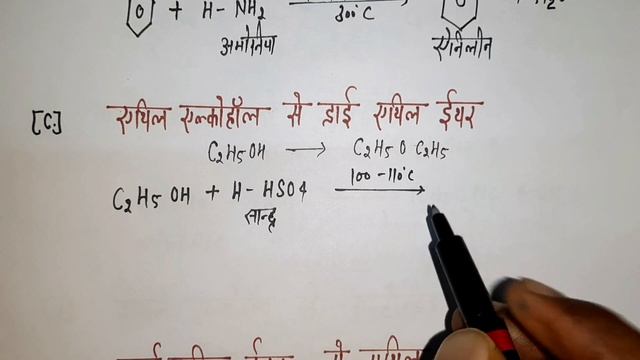 + H-NH2 300°C
अमोनिया एनिलीन
[C] एथिल एल्कोहॉल से डाई एथिल ईथर
C2H5OH → C2H5 O C2H5
C2H5 OH + H-HSO4 100-110°C
सान्द्र